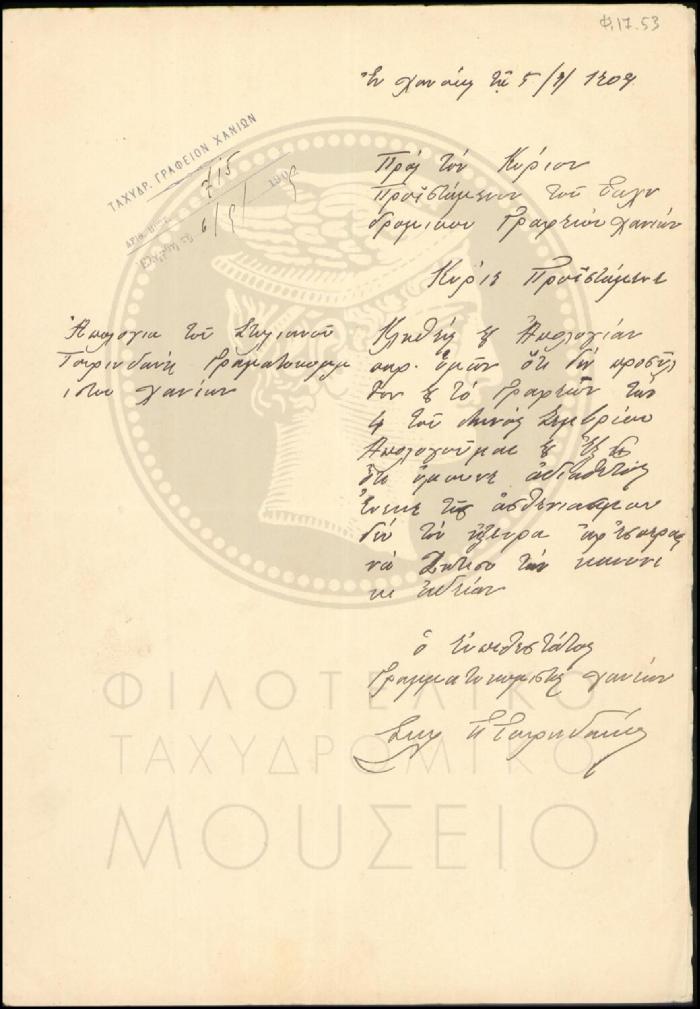 Φ.17.53
Ἐν Χανίοις τῇ 5/9/1909
ΤΑΧΥΔΡ. ΓΡΑΦΕΙΟΝ ΧΑΝΙΩΝ
715
ΑΡΙΘ. ΠΡΩΤ.
6/9/ 1909
Πρὸς τὸν Κύριον
Προϊστάμενον τοῦ Ταχυ
δρομικου Γραφείου Χανιών
Κύριε Προϊστάμενε
Ἀπολογία τοῦ Στυλιανοῦ
Τσιρινδανη Γραματοκομι
στου Χανίων
Κληθεὶς εἰς Ἀπολογίαν
παρ. ὑμῶν ὅτι δὲν προσῆλ
θον εἰς τὸ Γραφεῖον τὴν
4 τοῦ Μηνὸς Σεμβρίου
Ἀπολογοῦμαι εἰς ἑξῆς
ὅτι ἤμουνε ἀδιαθετος
ἕνεκε τῆς ἀσθενιας μου
δὲν τὸν ἤξευρα ἀφ' ἑσπερας
νὰ Ζητεσο τὴν κανονι
κη ἐκδείαν
ὁ Εὐπεθεστάτος
Γραμματοκομιστης Χανίων
Στυ Π Τσιρινδανης
ΦΙΛΟΤΕΛΙΚΟ
ΤΑΧΥΔΡΟΜΙΚΟ
ΜΟΥΣΕΙΟ